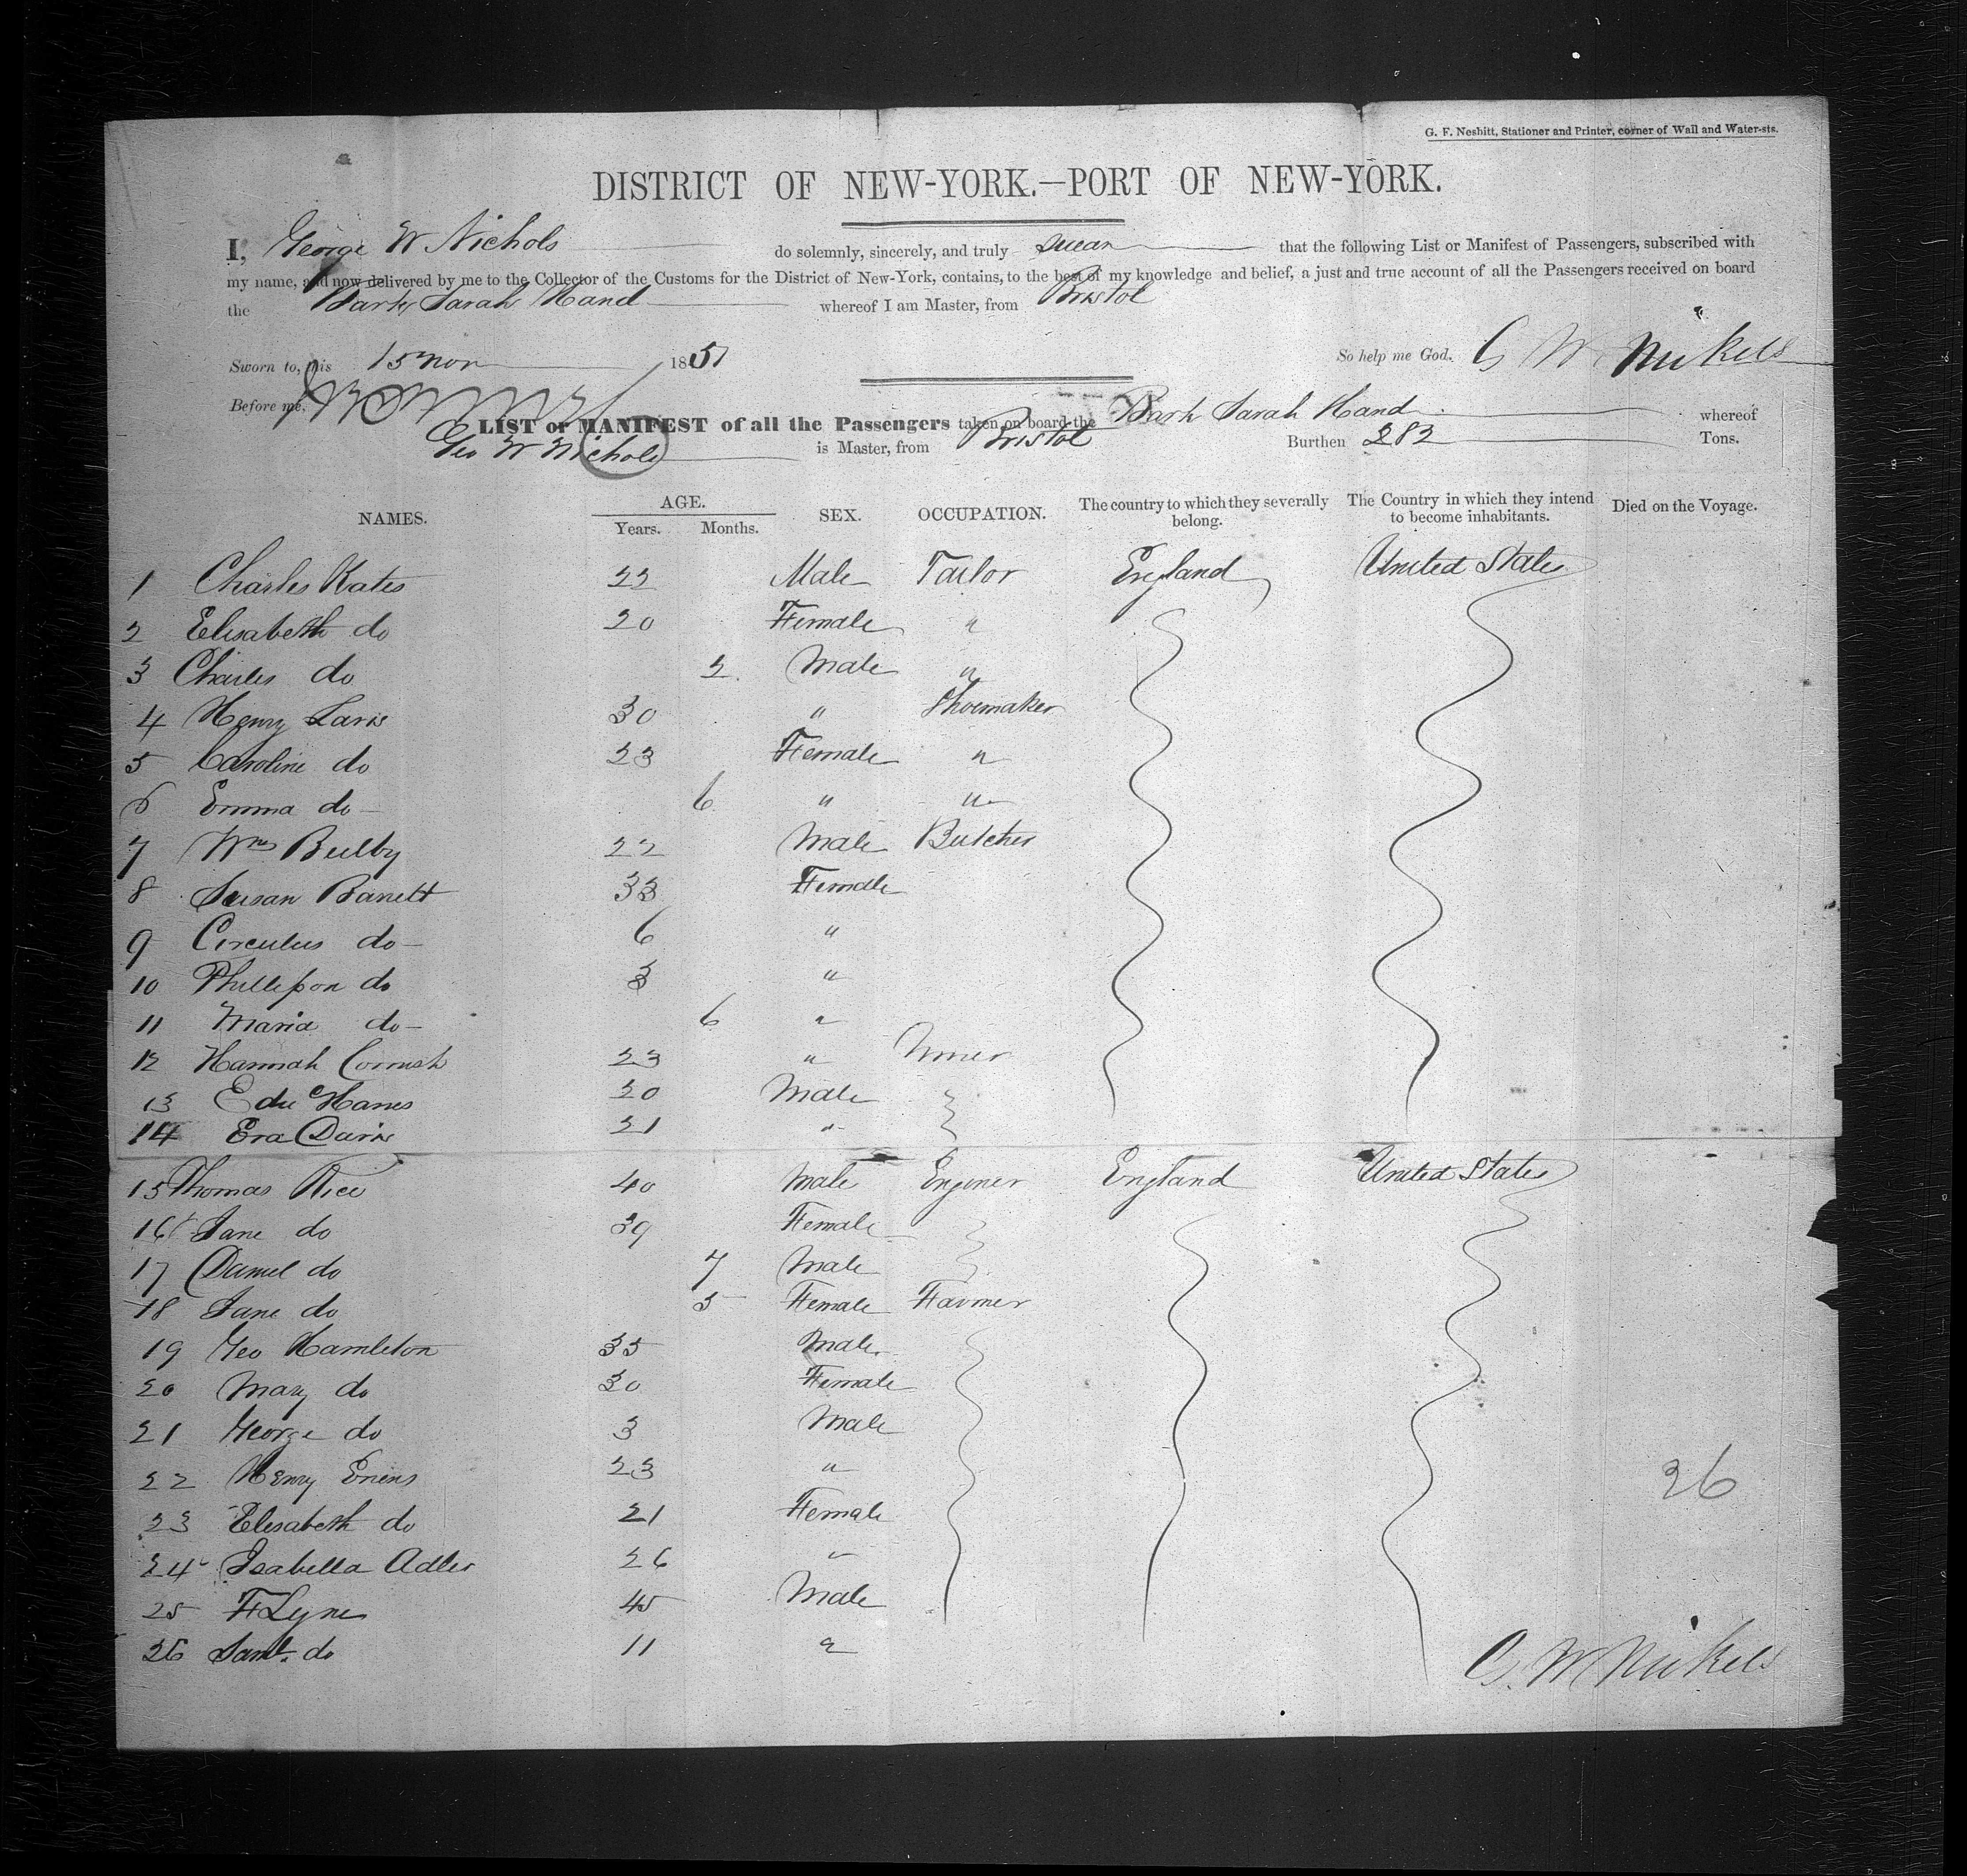 G. F. Nesbitt, Stationer and Printer, corner of Wall and Water-sts.
DISTRICT OF NEW-YORK.—PORT OF NEW-YORK.
I, George W Nichols do solemnly, sincerely, and truly swear that the following List or Manifest of Passengers, subscribed with
my name, and now delivered by me to the Collector of the Customs for the District of New-York, contains, to the best of my knowledge and belief, a just and true account of all the Passengers received on board
the Bark Sarah Hand whereof I am Master, from Bristol
Sworn to, this 15 Nov 1851 So help me God. G W Nickels
Before me,
LIST or MANIFEST of all the Passengers taken on board the Bark Sarah Hand whereof
Geo W Nichols is Master, from Bristol Burthen 282 Tons.
NAMES. AGE. Years. Months. SEX. OCCUPATION. The country to which they severally belong. The Country in which they intend to become inhabitants. Died on the Voyage.
1 Charles Kates 22 Male Tailor England United States
2 Elisabeth do 20 Female "
3 Charles do 2 Male "
4 Henry 30 " Shoemaker
5 Caroline do 23 Female "
6 Emma do 6 " "
7 Wm Bulby 22 Male Butcher
8 Susan Barrett 33 Female
9 do 6 "
10 do 3 "
11 Maria do 6 "
12 Hannah Cornish 23 "
13 20 Male
14 21 "
15 Thomas Rice 40 Male Enginer England United States
16 Jane do 39 Female
17 Daniel do 7 Male
18 Jane do 5 Female Farmer
19 Geo Hambleton 35 Male
20 Mary do 30 Female
21 George do 3 Male
22 Henry 23 "
23 Elisabeth do 21 Female
24 Isabella Adler 26 "
25 F Lyne 45 Male
26 Saml. do 11 "
26
G. W Nickels